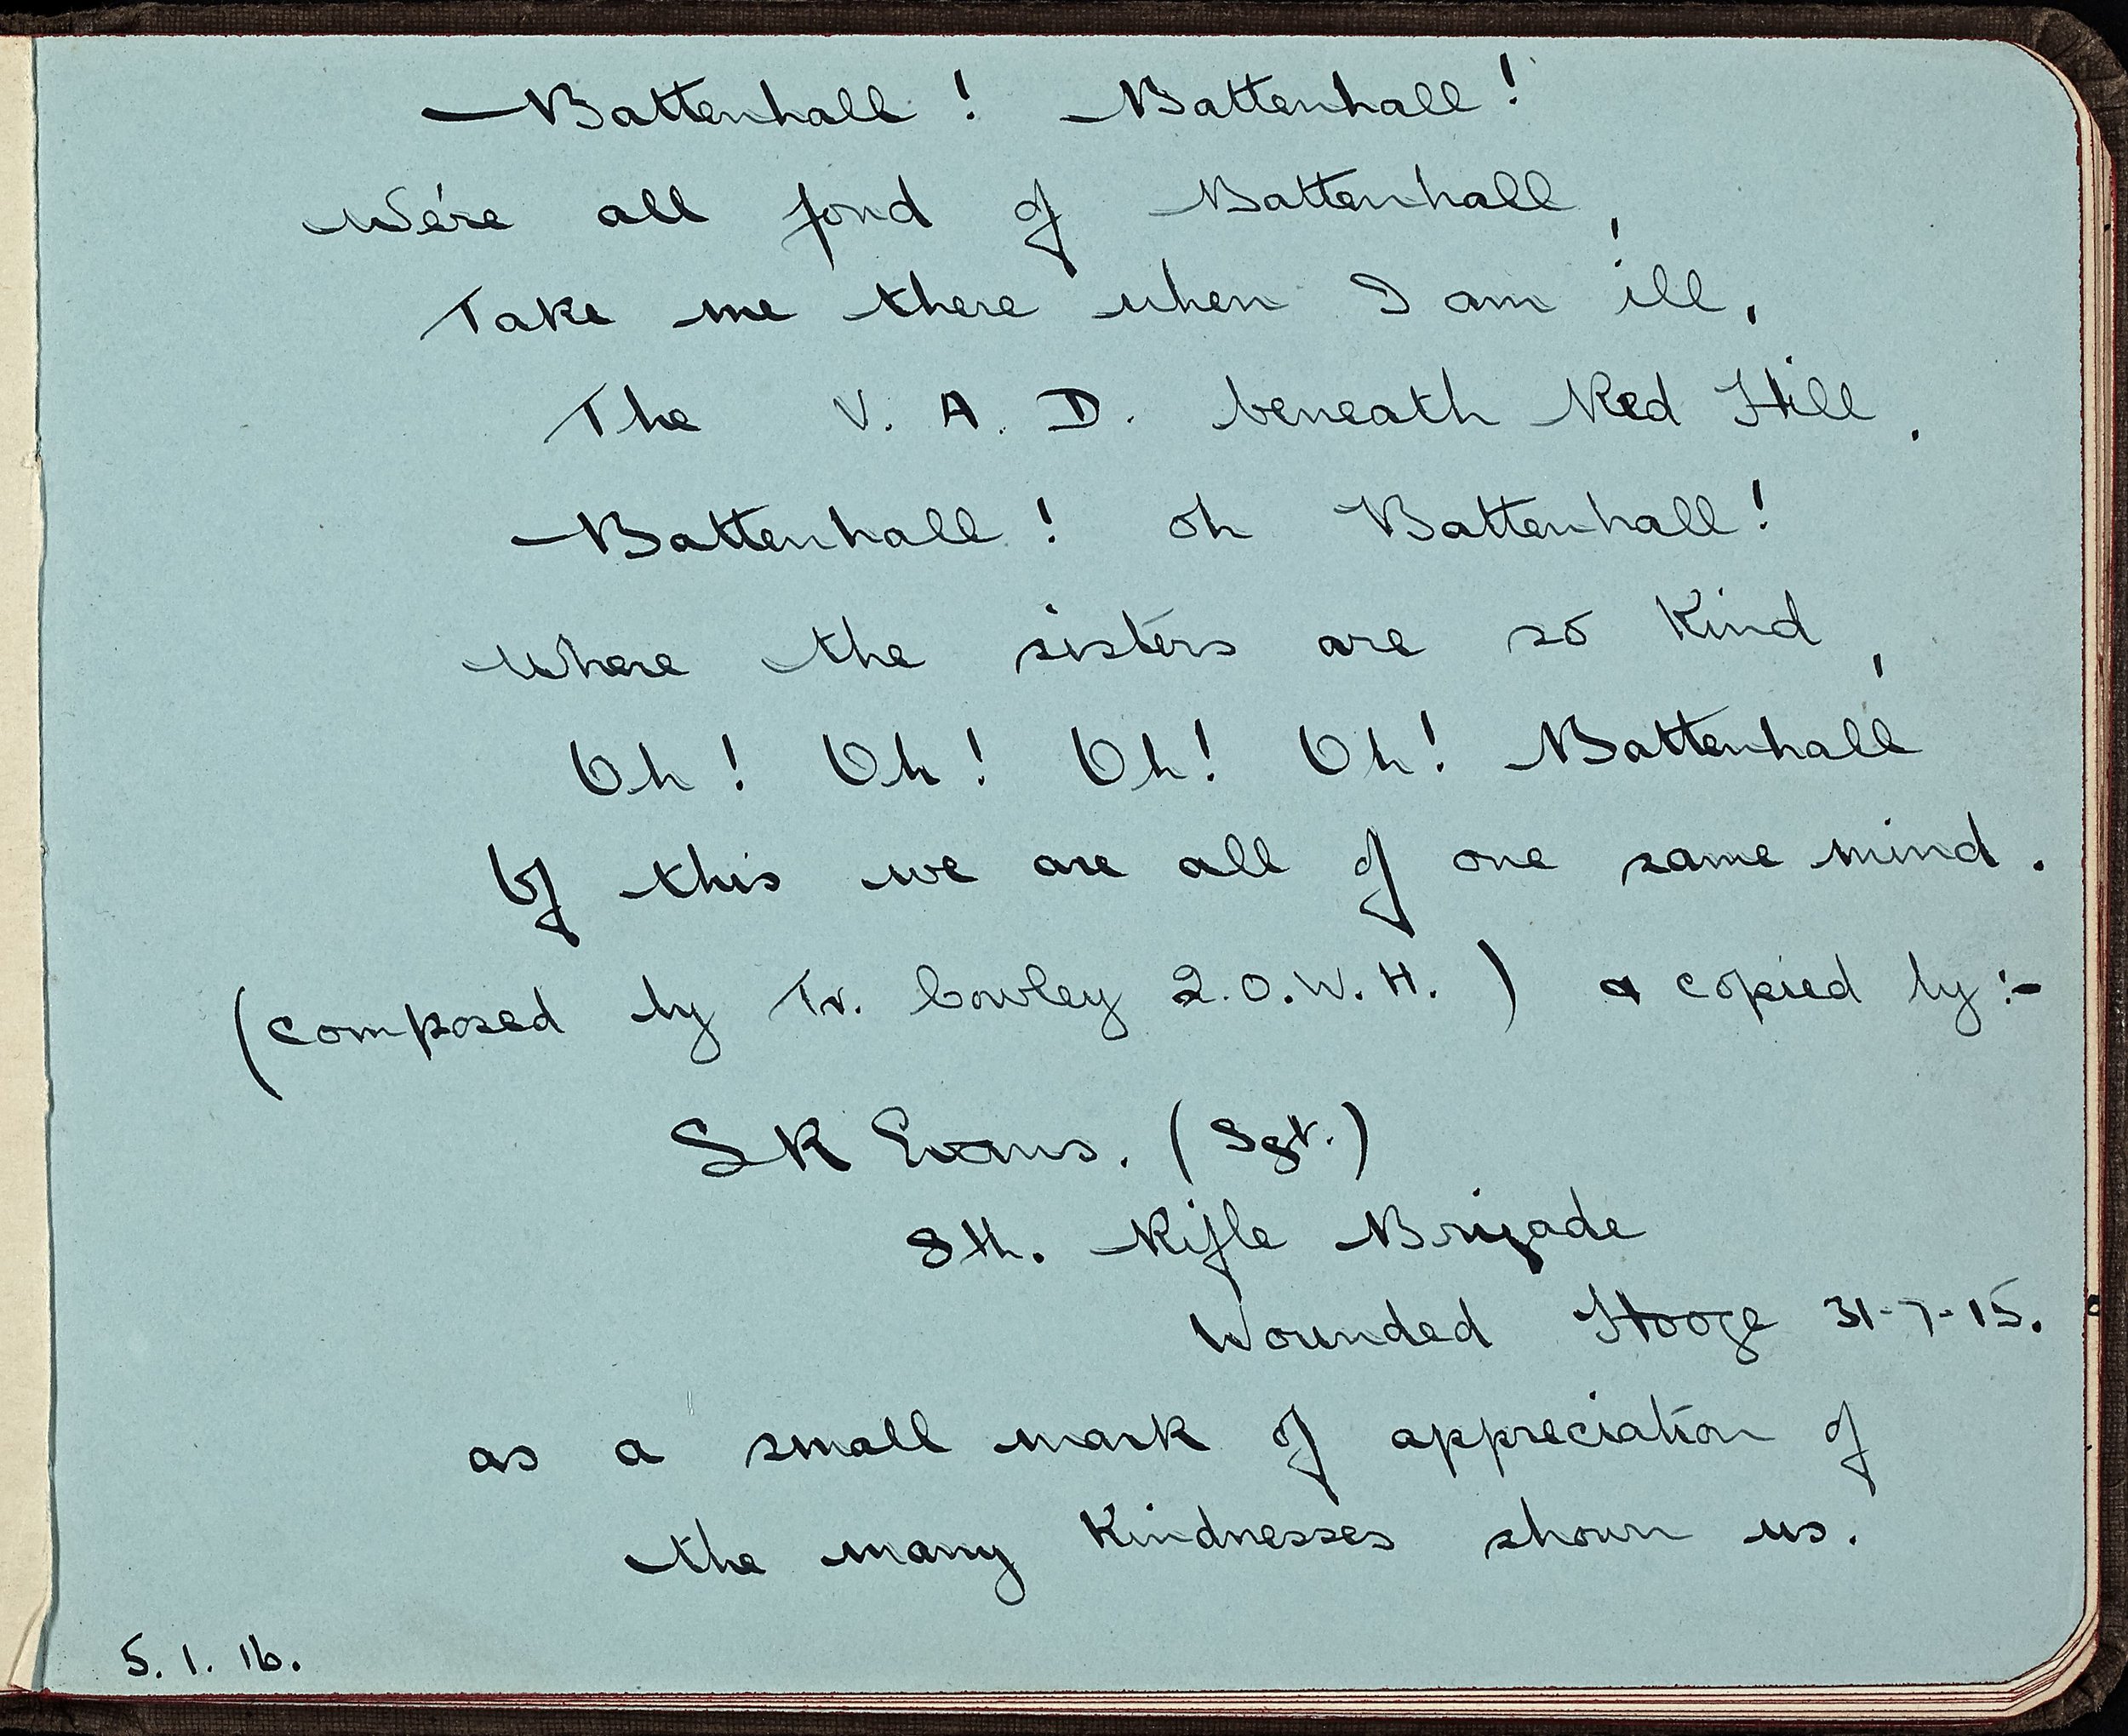 Battenhall! Battenhall!
We're all fond of Battenhall,
Take me there when I am ill,
The V. A. D. beneath Red Hill.
Battenhall! oh Battenhall!
Where the sisters are so kind,
Oh! Oh! Oh! Oh! Battenhall
Of this we are all of one same mind.
(composed by Tr. Cowley 2.O.W.H.) & copied by:-
S K Evans. (Sgt.)
8th. Rifle Brigade
Wounded Hooge 31-7-15.
as a small mark of appreciation of
the many kindnesses shown us.
5. 1. 16.